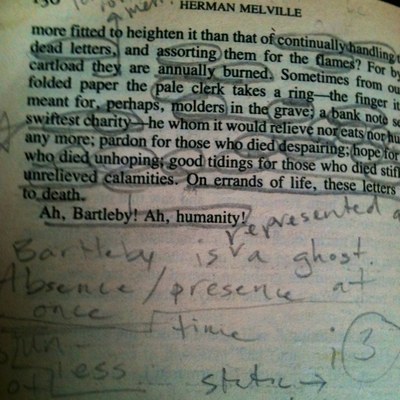 HERMAN MELVILLE
more fitted to heighten it than that of continually handling
dead letters, and assorting them for the flames? For by
cartload they are annually burned. Sometimes from ou
folded paper the pale clerk takes a ring—the finger it
meant for, perhaps, molders in the grave; a bank note se
swiftest charity—he whom it would relieve nor eats nor hu
any more; pardon for those who died despairing; hope for
who died unhoping; good tidings for those who died stif
unrelieved calamities. On errands of life, these letters
to death.
Ah, Bartleby! Ah, humanity!
represented a
Bartleby is a ghost.
Absence/presence at
once
time
3
less
static →